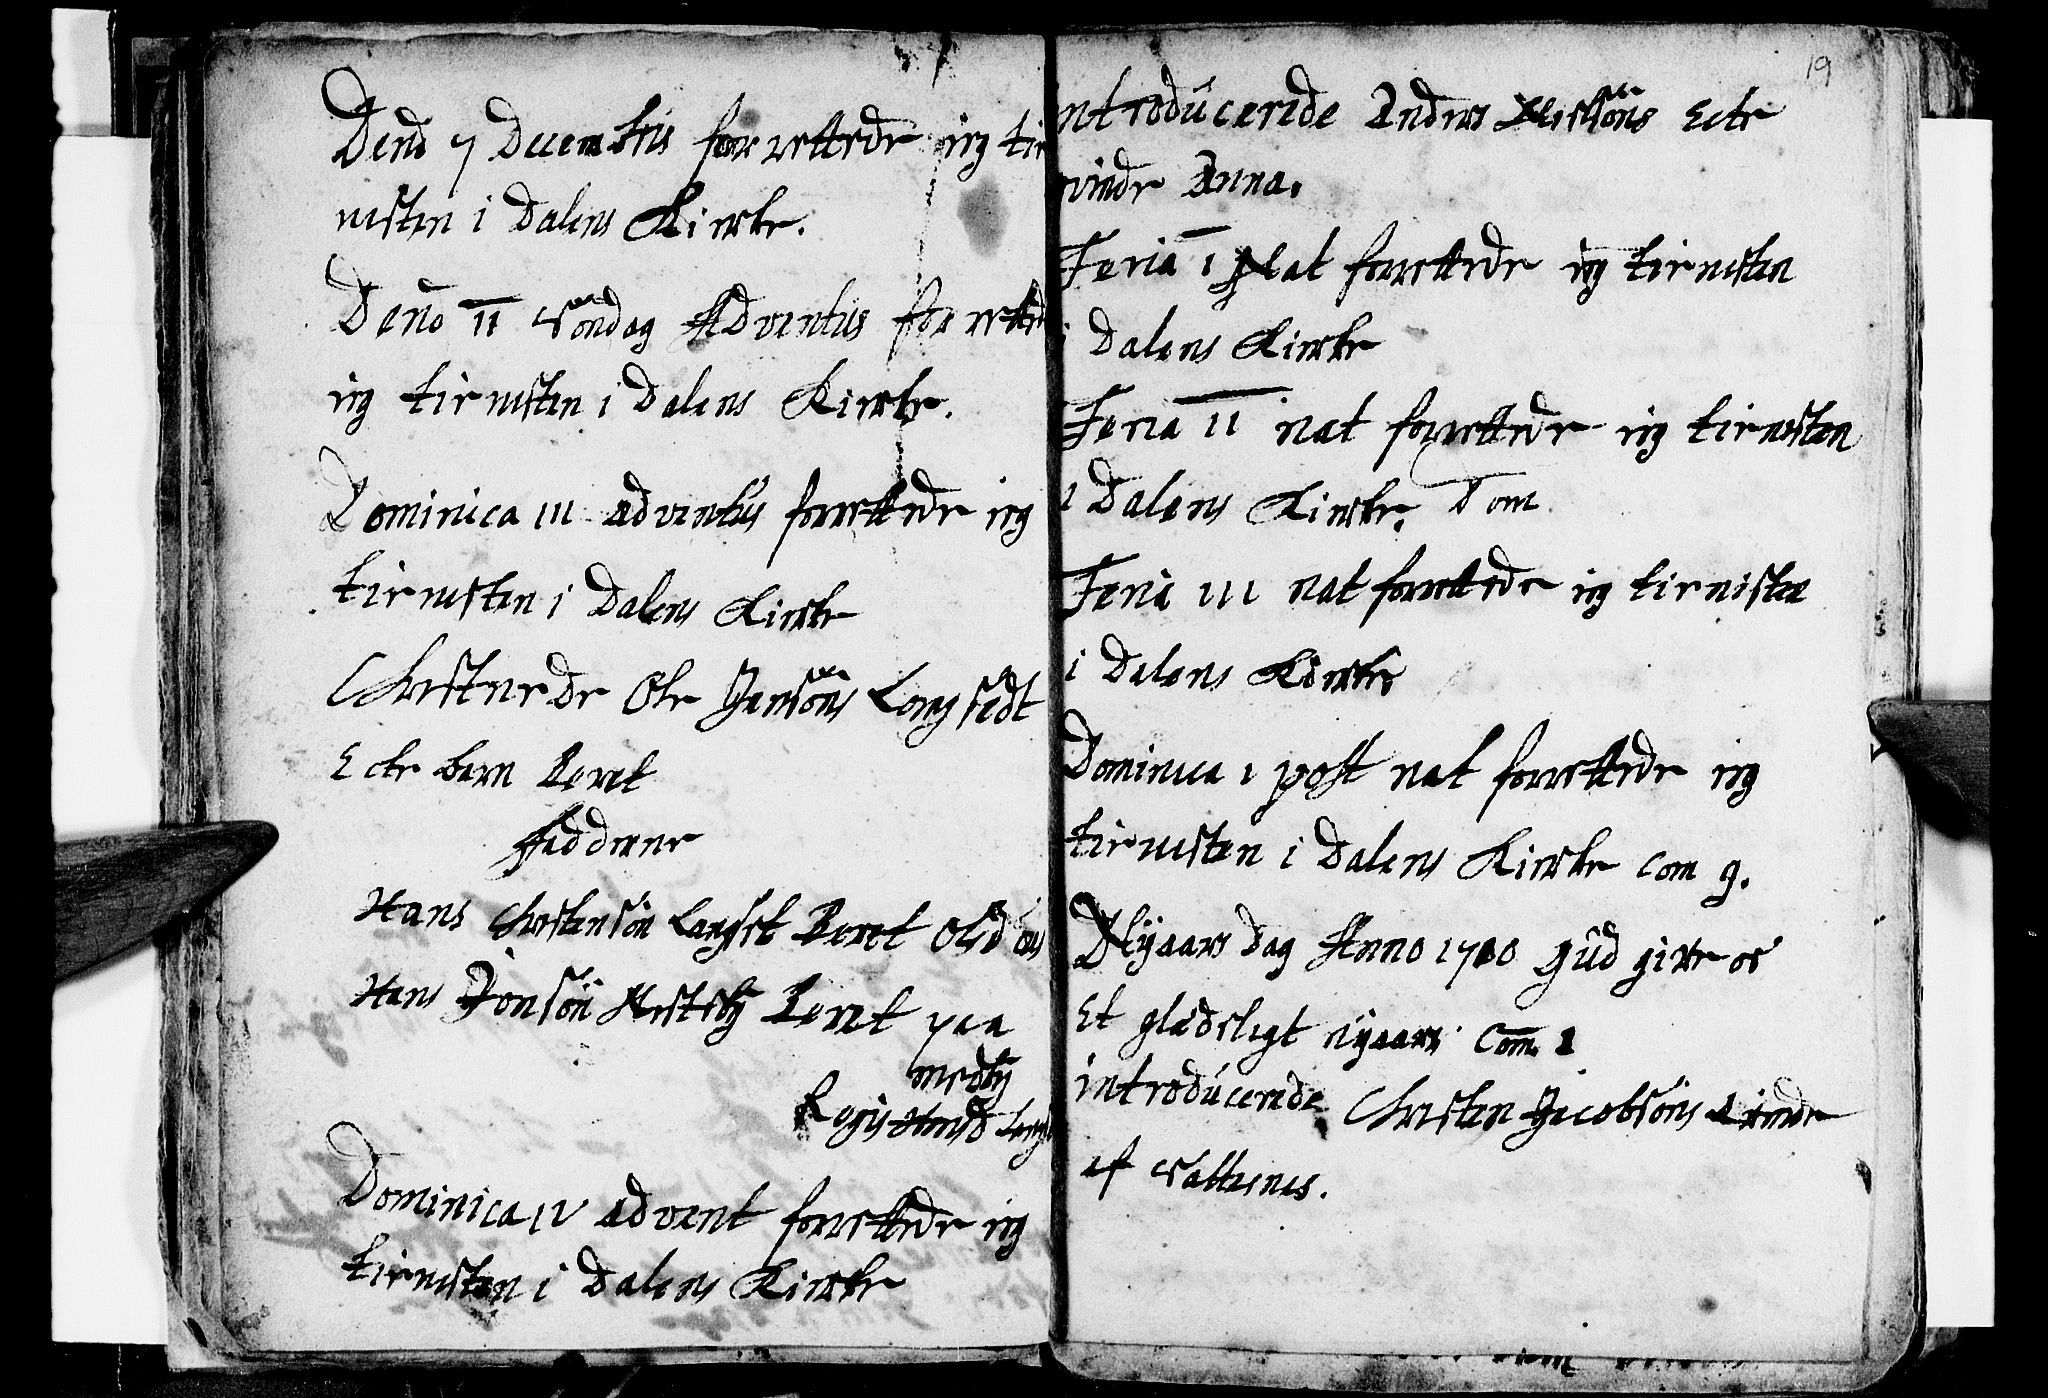 Dend 7 Decembris forrettede ieg tie
nisten i Dalens Kircke.
Dend II Söndag Adventus forretted
ieg tienisten i Dalens Kircke.
Dominica III adventus forrettede ieg
tienisten i Dalens Kircke
Christnede Ole Jensöns Langsedt
Ecte barn Beret
Faddrene
Hans Christensön Langset Beret Olsd
Hans Jonsön Beret paa
medby
Hansd
Dominica IV advent forrettede ieg
tienisten i Dalens Kircke
19
introducerede Anders Nielsöns Ecte
qvinde Anna.
Feria I Nat forrettede ieg tienisten
i Dalens Kircke
Feria II nat forrettede ieg tienisten
i Dalens Kircke. Dom
Feria III nat forrettede ieg tienisten
i Dalens Kircke
Dominica 1 post nat forrettede ieg
tienisten i Dalens Kircke com 9.
Nyaars dag Anno 1700 gud give os
Et glædeligt nyaar; Com. 1
introducerede Christen Jacobsöns qvinde
af